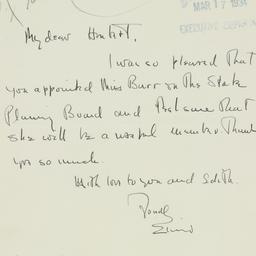 MAR 17 1934
EXECUTIVE DEPART
My dear Herbert,
I was so pleased that
you appointed Miss Burr on the State
Planning Board and feel sure that
she will be a useful member. Thank
you so much.
With love to you and Edith.